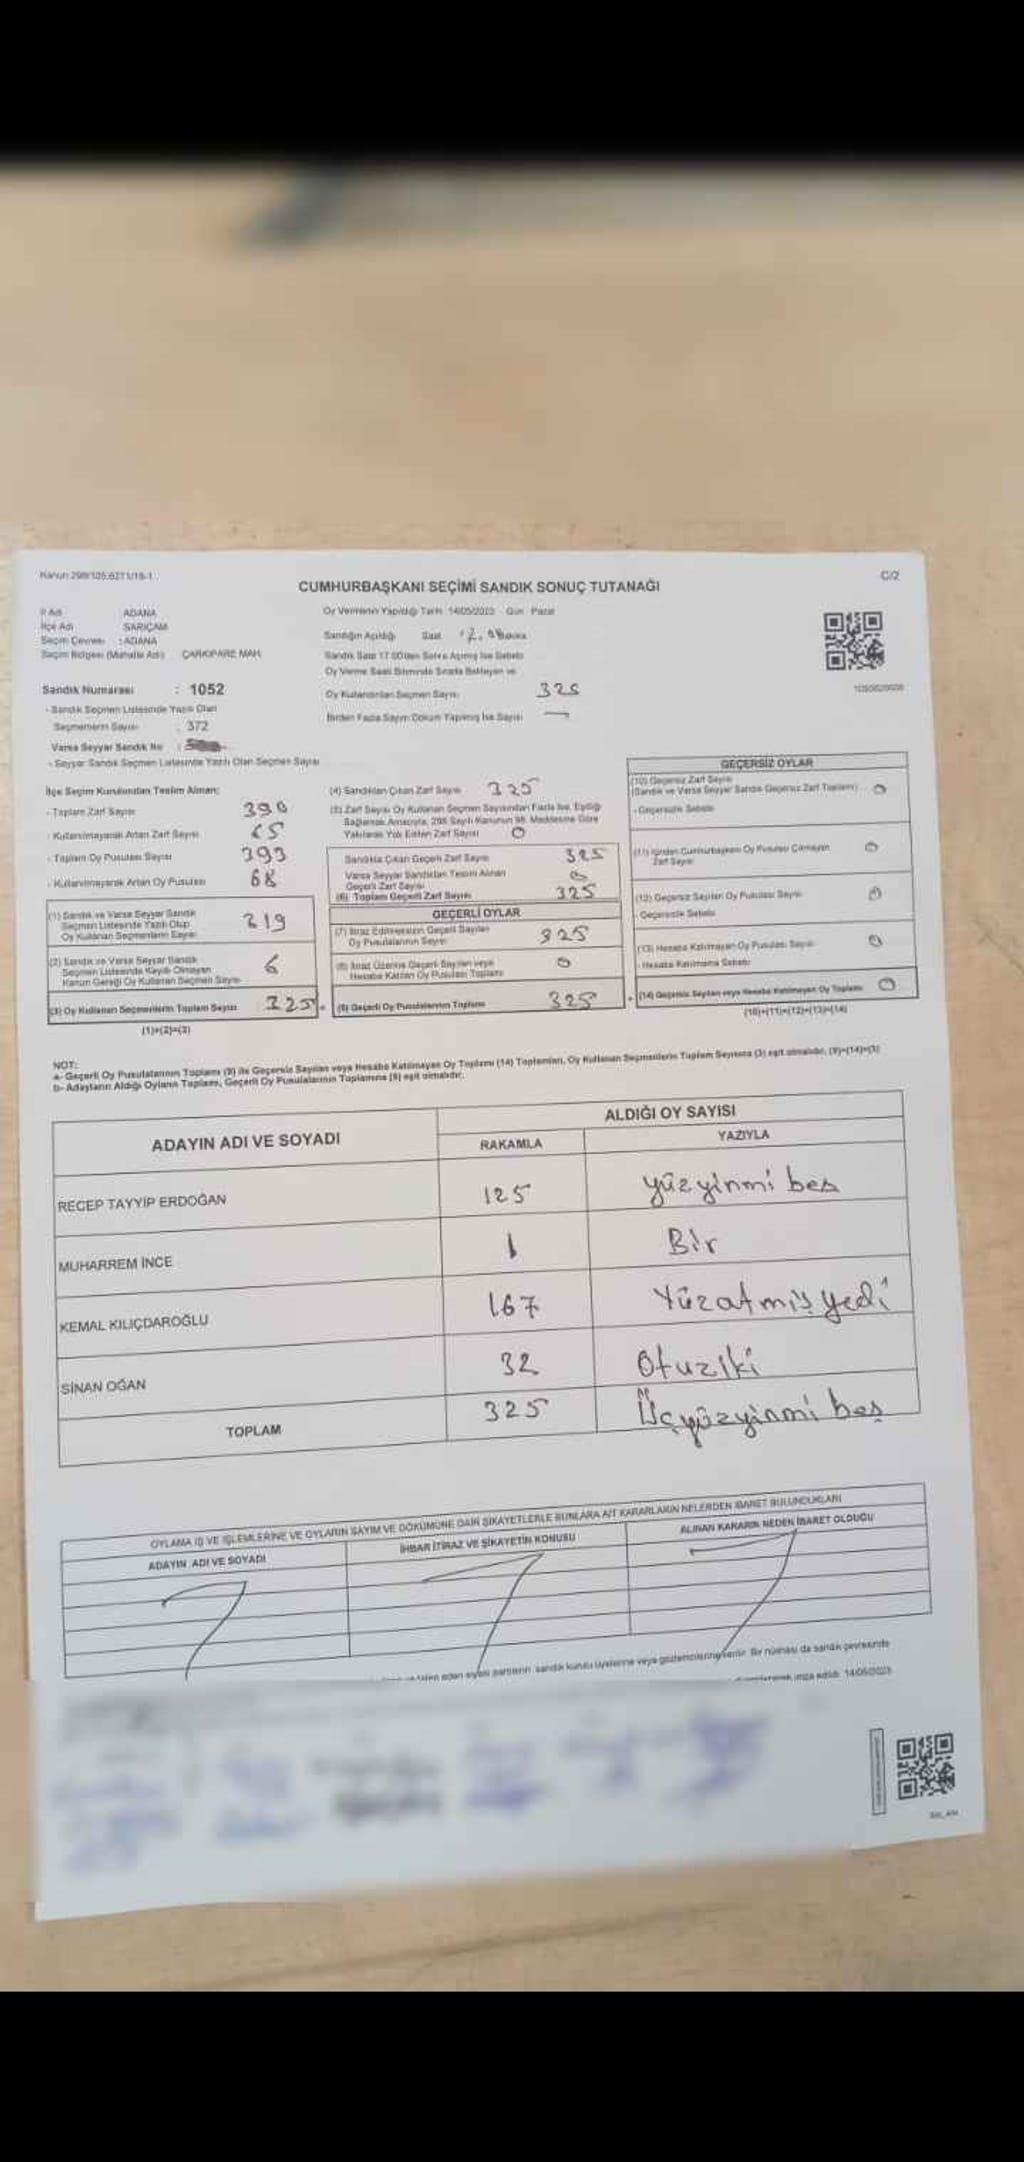 C/2
CUMHURBAŞKANI SEÇİMİ SANDIK SONUÇ TUTANAĞI
İl Adı ADANA
İlçe Adı SARIÇAM
Seçim Çevresi : ADANA
Seçim Bölgesi (Mahalle Adı) ÇARKIPARE MAH.
Sandık Numarası : 1052
- Sandık Seçmen Listesinde Yazılı Olan
Seçmenlerin Sayısı : 372
Varsa Seyyar Sandık No :
- Seyyar Sandık Seçmen Listesinde Yazılı Olan Seçmen Sayısı
Oy Vermenin Yapıldığı Tarih 14/05/2023 Gün Pazar
Sandığın Açıldığı Saat
Sandık Saat 17.00'den Sonra Açılmış İse Sebebi
Oy Verme Saati Bitiminde Sırada Bekleyen ve
Oy Kullandırılan Seçmen Sayısı 325
Birden Fazla Sayım Döküm Yapılmış İse Sayısı —
İlçe Seçim Kurulundan Teslim Alınan;
- Toplam Zarf Sayısı 390
- Kullanılmayarak Artan Zarf Sayısı 65
- Toplam Oy Pusulası Sayısı 393
- Kullanılmayarak Artan Oy Pusulası 68
(1) Sandık ve Varsa Seyyar Sandık
Seçmen Listesinde Yazılı Olup
Oy Kullanan Seçmenlerin Sayısı 319
(2) Sandık ve Varsa Seyyar Sandık
Seçmen Listesinde Kayıtlı Olmayan
Kanun Gereği Oy Kullanan Seçmen Sayısı 6
(3) Oy Kullanan Seçmenlerin Toplam Sayısı 325
(1)+(2)=(3)
(4) Sandıktan Çıkan Zarf Sayısı 325
(5) Zarf Sayısı Oy Kullanan Seçmen Sayısından Fazla İse, Eşitliği
Sağlamak Amacıyla, 298 Sayılı Kanunun 98. Maddesine Göre
Yakılarak Yok Edilen Zarf Sayısı 0
Sandıkta Çıkan Geçerli Zarf Sayısı 325
Varsa Seyyar Sandıktan Teslim Alınan
Geçerli Zarf Sayısı 0
(6) Toplam Geçerli Zarf Sayısı 325
GEÇERLİ OYLAR
(7) İtiraz Edilmeksizin Geçerli Sayılan
Oy Pusulalarının Sayısı 325
(8) İtiraz Üzerine Geçerli Sayılan veya
Hesaba Katılan Oy Pusulası Toplamı 0
(9) Geçerli Oy Pusulalarının Toplamı 325
GEÇERSİZ OYLAR
(10) Geçersiz Zarf Sayısı
(Sandık ve Varsa Seyyar Sandık Geçersiz Zarf Toplamı) 0
- Geçersizlik Sebebi
(11) İçinden Cumhurbaşkanı Oy Pusulası Çıkmayan
Zarf Sayısı 0
(12) Geçersiz Sayılan Oy Pusulası Sayısı 0
- Geçersizlik Sebebi
(13) Hesaba Katılmayan Oy Pusulası Sayısı 0
- Hesaba Katılmama Sebebi
(14) Geçersiz Sayılan veya Hesaba Katılmayan Oy Toplamı 0
(10)+(11)+(12)+(13)=(14)
NOT:
a- Geçerli Oy Pusulalarının Toplamı (9) ile Geçersiz Sayılan veya Hesaba Katılmayan Oy Toplamı (14) Toplamları, Oy Kullanan Seçmenlerin Toplam Sayısına (3) eşit olmalıdır, (9)+(14)=(3)
b- Adayların Aldığı Oyların Toplamı, Geçerli Oy Pusulalarının Toplamına (9) eşit olmalıdır.
ADAYIN ADI VE SOYADI ALDIĞI OY SAYISI
RAKAMLA YAZIYLA
RECEP TAYYİP ERDOĞAN 125 yüzyirmi beş
MUHARREM İNCE 1 Bir
KEMAL KILIÇDAROĞLU 167 Yüzatmış yedi
SİNAN OĞAN 32 Otuziki
TOPLAM 325 Üçyüzyirmi beş
OYLAMA İŞ VE İŞLEMLERİNE VE OYLARIN SAYIM VE DÖKÜMÜNE DAİR ŞİKAYETLERLE BUNLARA AİT KARARLARIN NELERDEN İBARET BULUNDUKLARI
ADAYIN ADI VE SOYADI İHBAR İTİRAZ VE ŞİKAYETİN KONUSU ALINAN KARARIN NEDEN İBARET OLDUĞU
talep eden siyasi partilerin sandık kurulu üyelerine veya gözlemcilerine verilir. Bir nüshası da sandık çevresinde
imza edildi. 14/05/2023